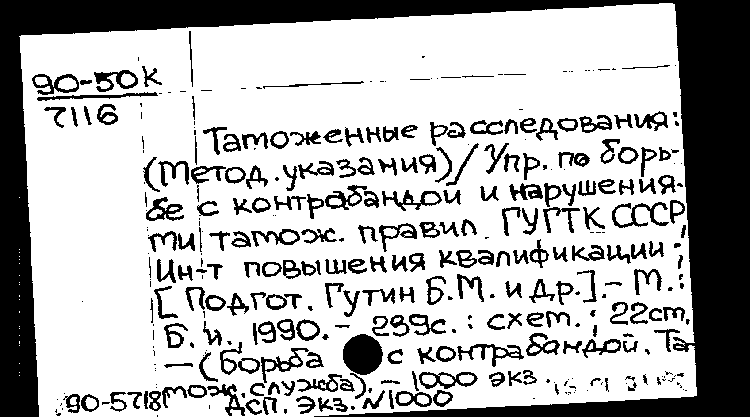 90-50к
7116
Таможенные расследования:
(Метод. указания) / Упр. по борь-
бе с контрабандой и нарушения-
ми тамож. правил ГУГТК СССР,
Ин-т повышения квалификации;
[Подгот. Гутин Б.М. и др.].- М.:
Б. и., 1990. - 239с. : схем. ; 22см.
— (Борьба с контрабандой. Та-
мож. служба). - 1000 экз.
90-5718
Дсп. экз. N1000